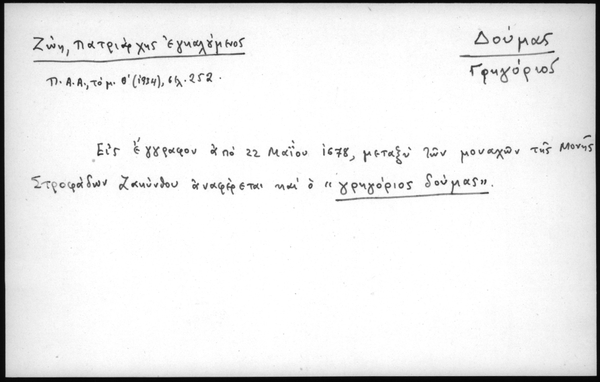 Ζώη, Πατριάρχης ἐγκαλούμενος
Δούμας
Γρηγόριος
Π.Α.Α., τόμ. Θ' (1934), σελ. 252.
Εἰς ἔγγραφον ἀπό 22 Μαΐου 1678, μεταξύ τῶν μοναχῶν τῆς Μονῆς
Στροφάδων Ζακύνθου ἀναφέρεται καί ὁ "γρηγόριος δούμας".